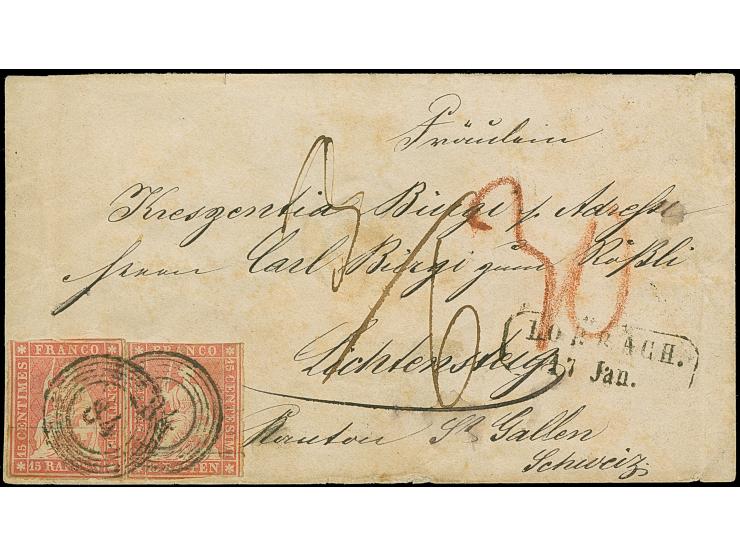 Fräulein
Kreszentia Bürgi p. Adresse
Herrn Carl Bürgi zum Rößli
Lichtensteig
Kanton St Gallen
Schweiz.
3/6
30
LÖRRACH.
17 Jan.
FRANCO
15 CENTIMES
15 RA
FRANCO
15 CENTESIMI
PEN